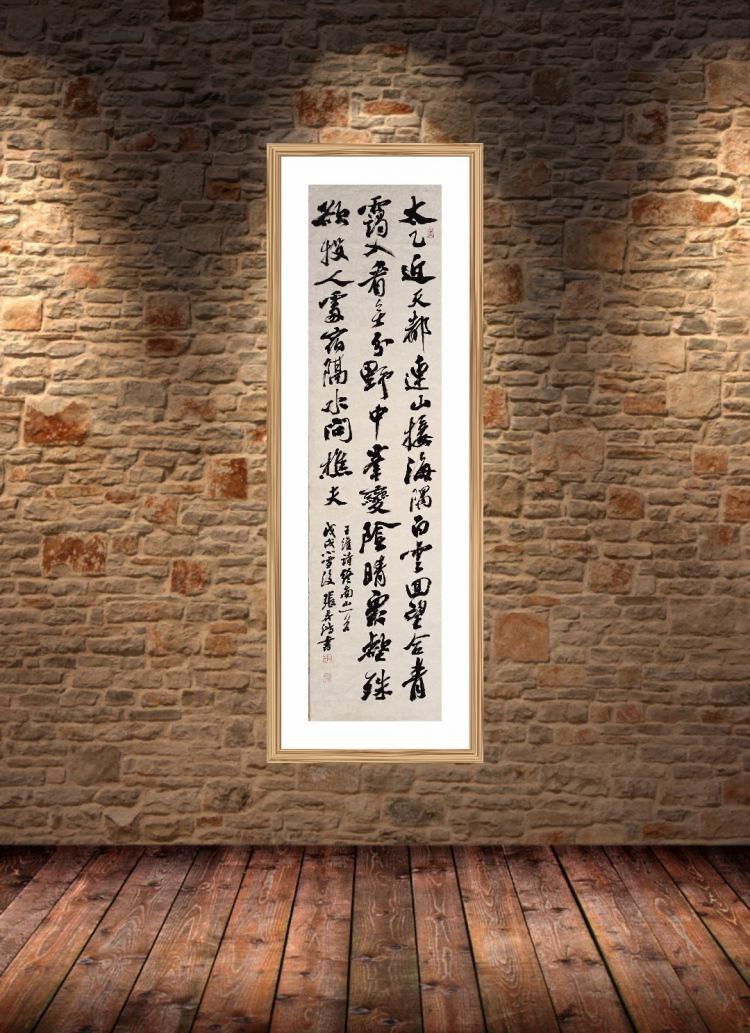 太乙近天都連山接海隅白雲回望合青
靄入看無分野中峯變陰晴衆壑殊
欲投人處宿隔水問樵夫
王維詩終南山一首
戊戌小雪後張
書